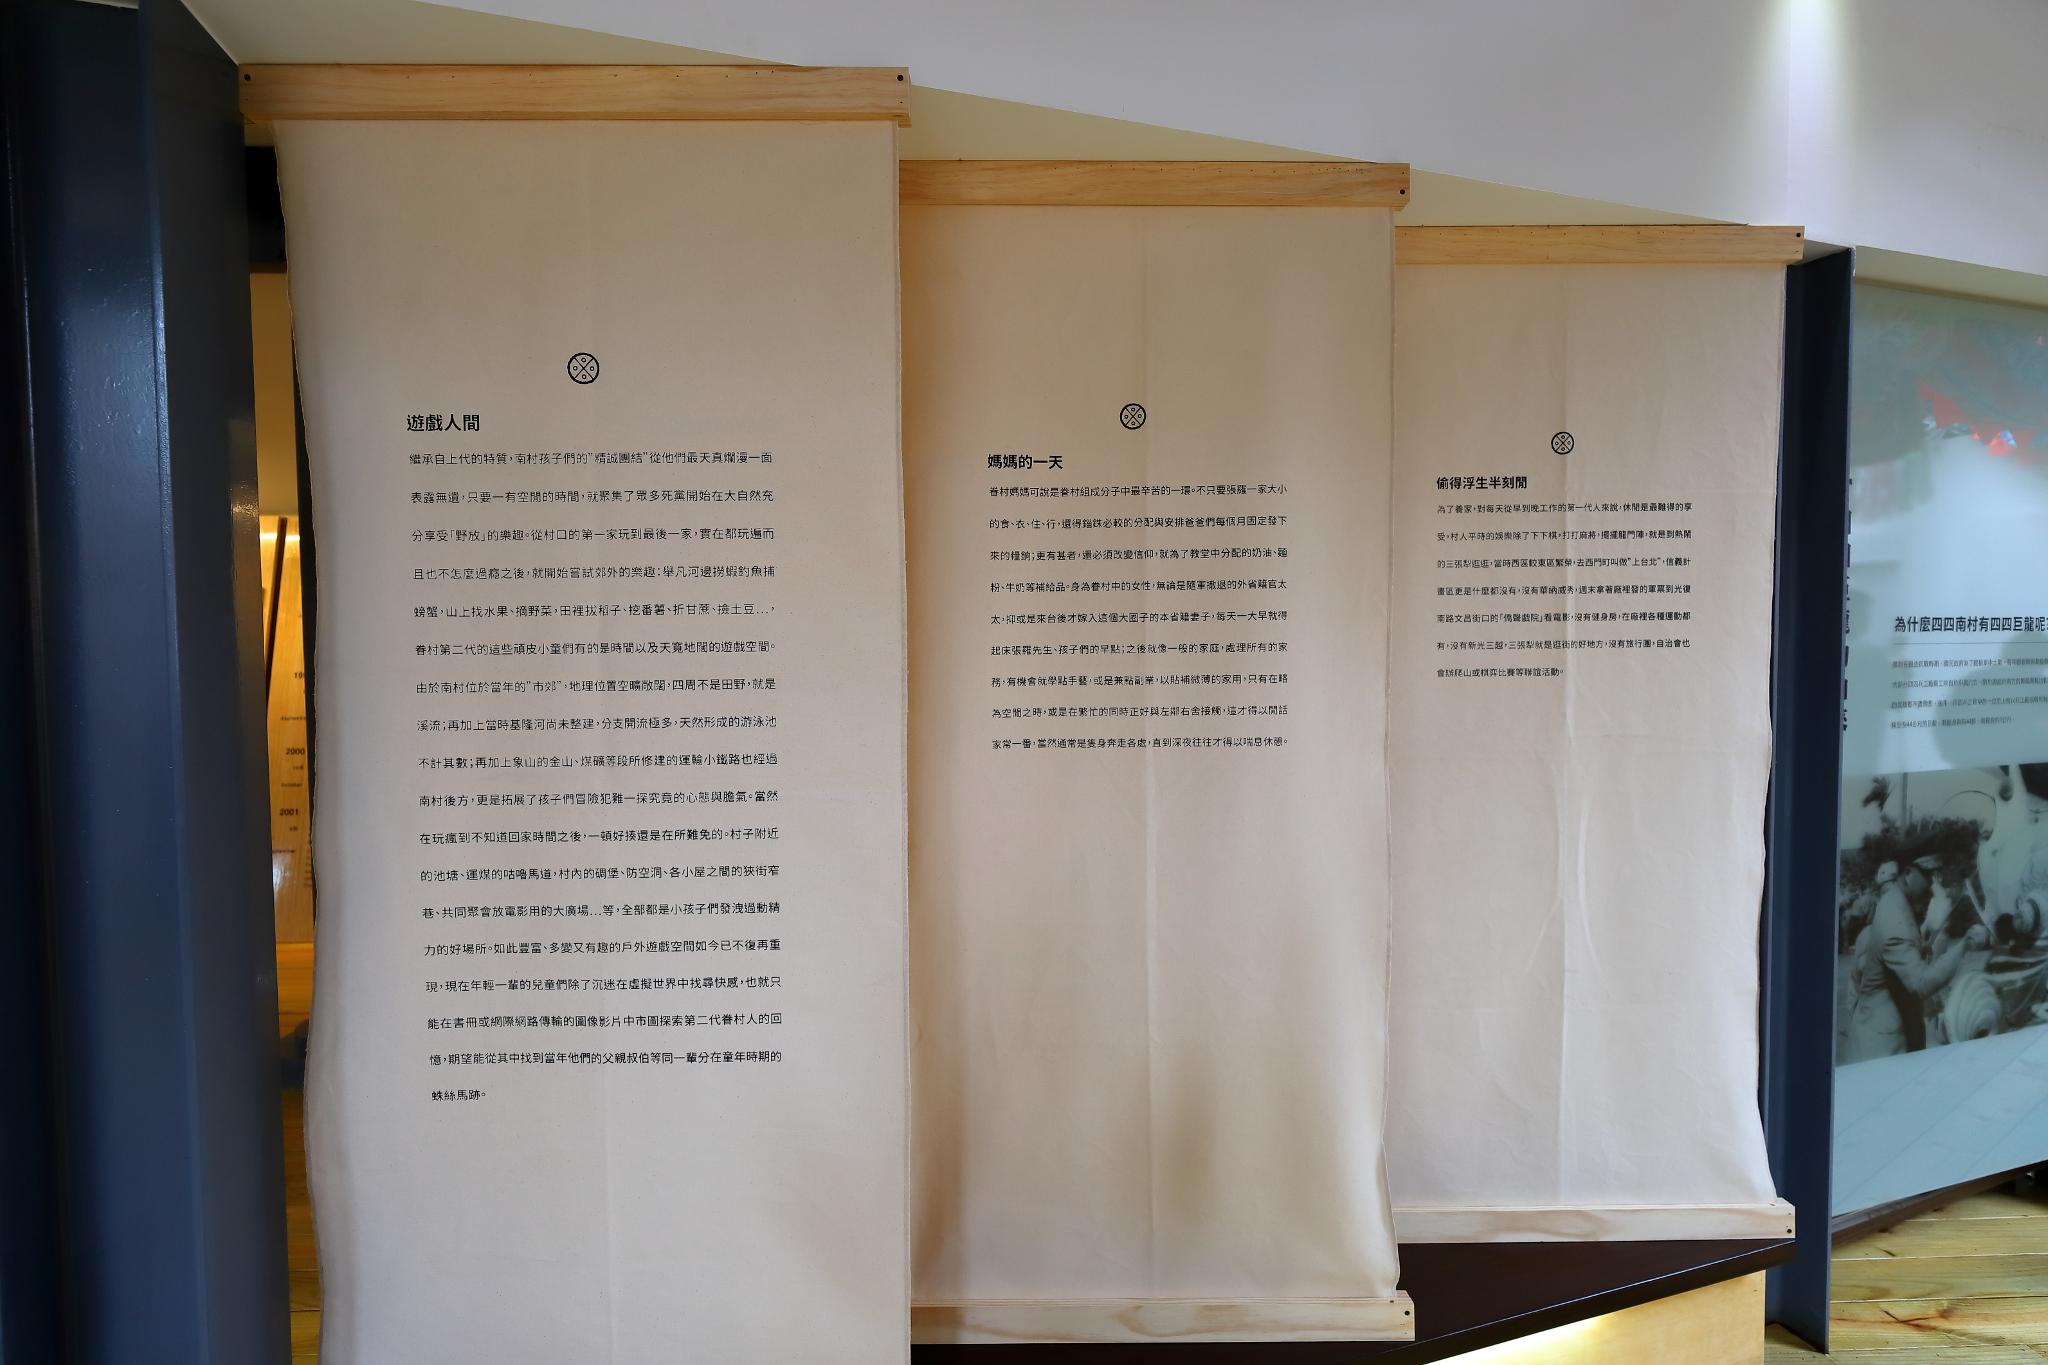 遊戲人間
繼承自上代的特質，南村孩子們的"精誠團結"從他們最天真爛漫一面
表露無遺，只要一有空閒的時間，就聚集了眾多死黨開始在大自然充
分享受「野放」的樂趣。從村口的第一家玩到最後一家，實在都玩遍而
且也不怎麼過癮之後，就開始嘗試郊外的樂趣：舉凡河邊撈蝦釣魚捕
螃蟹，山上找水果、摘野菜，田裡拔稻子、挖番薯、折甘蔗、撿土豆…，
眷村第二代的這些頑皮小童們有的是時間以及天寬地闊的遊戲空間。
由於南村位於當年的"市郊"，地理位置空曠敞闊，四周不是田野，就是
溪流；再加上當時基隆河尚未整建，分支開流極多，天然形成的游泳池
不計其數；再加上象山的金山、煤礦等段所修建的運輸小鐵路也經過
南村後方，更是拓展了孩子們冒險犯難一探究竟的心態與膽氣。當然
在玩瘋到不知道回家時間之後，一頓好揍還是在所難免的。村子附近
的池塘、運煤的咕嚕馬道，村內的碉堡、防空洞、各小屋之間的狹街窄
巷、共同聚會放電影用的大廣場…等，全部都是小孩子們發洩過動精
力的好場所。如此豐富、多變又有趣的戶外遊戲空間如今已不復再重
現，現在年輕一輩的兒童們除了沉迷在虛擬世界中找尋快感，也就只
能在書冊或網際網路傳輸的圖像影片中市圖探索第二代眷村人的回
憶，期望能從其中找到當年他們的父親叔伯等同一輩分在童年時期的
蛛絲馬跡。
媽媽的一天
眷村媽媽可說是眷村組成分子中最辛苦的一環。不只要張羅一家大小
的食、衣、住、行，還得錙銖必較的分配與安排爸爸們每個月固定發下
來的糧餉；更有甚者，還必須改變信仰，就為了教堂中分配的奶油、麵
粉、牛奶等補給品。身為眷村中的女性，無論是隨軍撤退的外省籍官太
太，抑或是來台後才嫁入這個大圈子的本省籍妻子，每天一大早就得
起床張羅先生、孩子們的早點；之後就像一般的家庭，處理所有的家
務，有機會就學點手藝，或是兼點副業，以貼補微薄的家用，只有在略
為空閒之時，或是在繁忙的同時正好與左鄰右舍接觸，這才得以閒話
家常一番，當然通常是隻身奔走各處，直到深夜往往才得以喘息休憩。
偷得浮生半刻閒
為了養家，對每天從早到晚工作的第一代人來說，休閒是最難得的享
受。村人平時的娛樂除了下下棋，打打麻將，擺擺龍門陣，就是到熱鬧
的三張犁逛逛，當時西區較東區繁榮，去西門町叫做"上台北"，信義計
畫區更是什麼都沒有，沒有華納威秀，週末拿著廠裡發的軍票到光復
南路文昌街口的「僑聲戲院」看電影，沒有健身房，在廠裡各種運動都
有，沒有新光三越，三張犁就是逛街的好地方，沒有旅行團，自治會也
會辦爬山或棋弈比賽等聯誼活動。
為什麼四四南村有四四巨龍呢
2000
2001